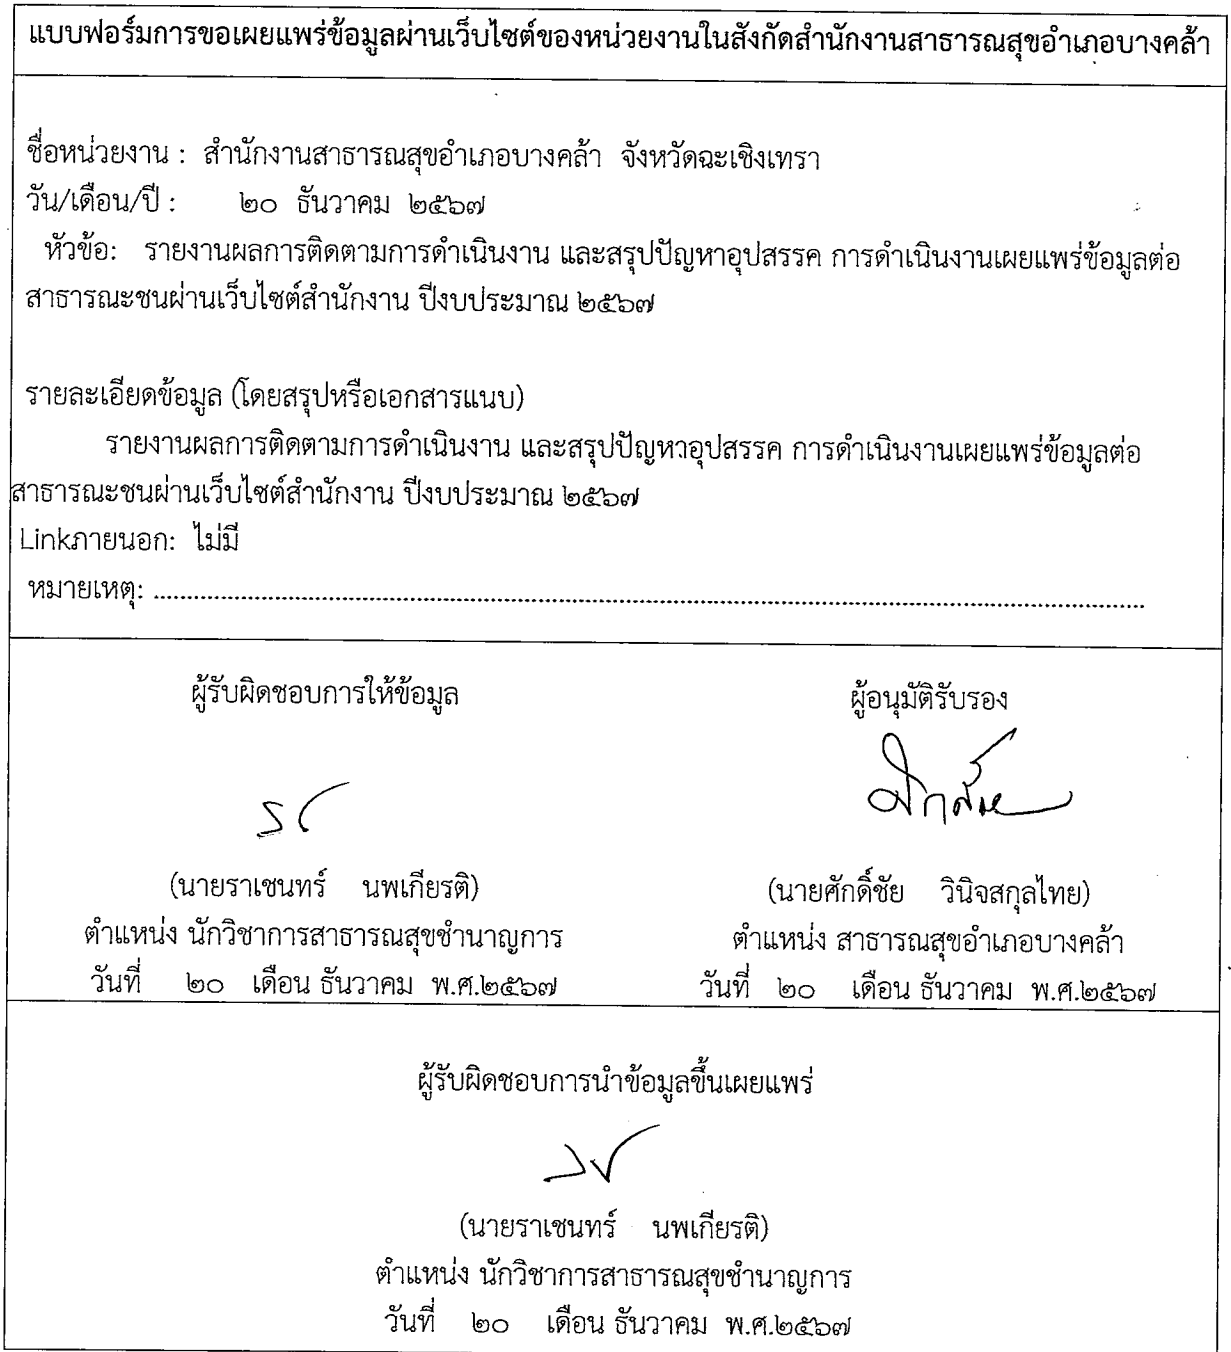 แบบฟอร์มการขอเผยแพร่ข้อมูลผ่านเว็บไซต์ของหน่วยงานในสังกัดสำนักงานสาธารณสุขอำเภอบางคล้า
ชื่อหน่วยงาน : สำนักงานสาธารณสุขอำเภอบางคล้า จังหวัดฉะเชิงเทรา
วัน/เดือน/ปี : ๒๐ ธันวาคม ๒๕๖๗
หัวข้อ: รายงานผลการติดตามการดำเนินงาน และสรุปปัญหาอุปสรรค การดำเนินงานเผยแพร่ข้อมูลต่อ
สาธารณะชนผ่านเว็บไซต์สำนักงาน ปีงบประมาณ ๒๕๖๗
รายละเอียดข้อมูล (โดยสรุปหรือเอกสารแนบ)
รายงานผลการติดตามการดำเนินงาน และสรุปปัญหาอุปสรรค การดำเนินงานเผยแพร่ข้อมูลต่อ
สาธารณะชนผ่านเว็บไซต์สำนักงาน ปีงบประมาณ ๒๕๖๗
Linkภายนอก: ไม่มี
หมายเหตุ: ..........................................................................................................
ผู้รับผิดชอบการให้ข้อมูล ผู้อนุมัติรับรอง
(นายราเชนทร์ นพเกียรติ) (นายศักดิ์ชัย วินิจสกุลไทย)
ตำแหน่ง นักวิชาการสาธารณสุขชำนาญการ ตำแหน่ง สาธารณสุขอำเภอบางคล้า
วันที่ ๒๐ เดือน ธันวาคม พ.ศ.๒๕๖๗ วันที่ ๒๐ เดือน ธันวาคม พ.ศ.๒๕๖๗
ผู้รับผิดชอบการนำข้อมูลขึ้นเผยแพร่
(นายราเชนทร์ นพเกียรติ)
ตำแหน่ง นักวิชาการสาธารณสุขชำนาญการ
วันที่ ๒๐ เดือน ธันวาคม พ.ศ.๒๕๖๗